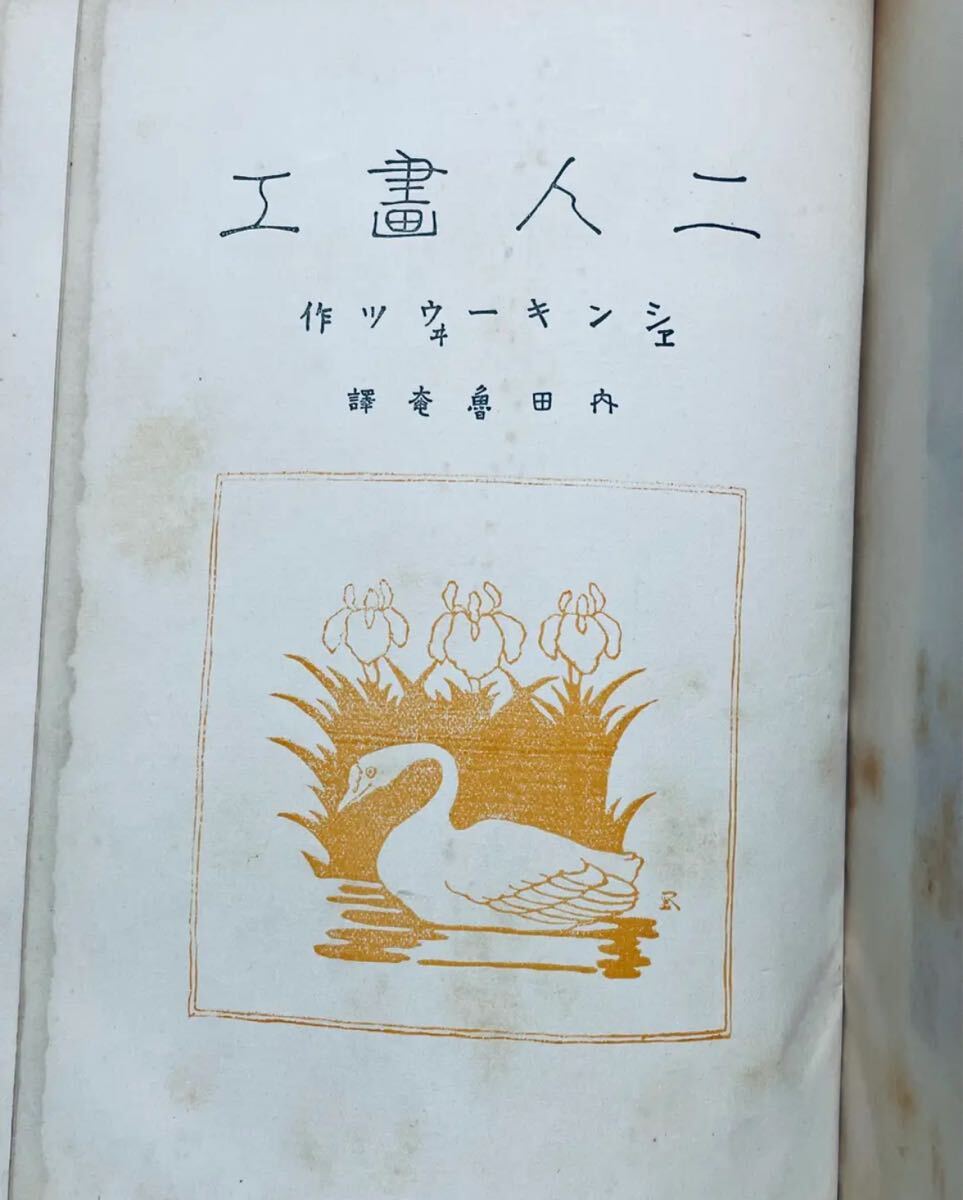 二人畫工
シヱンキーウヰツ作
内田魯奄譯